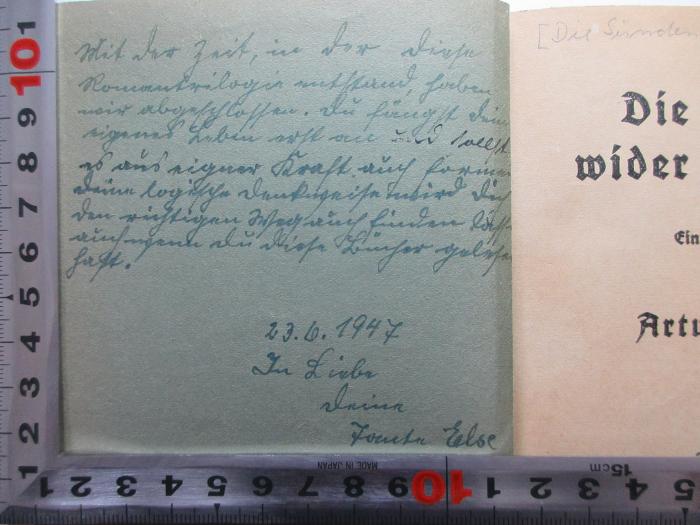 Mit der Zeit, in der diese
Romantrilogie entstand, haben
wir abgeschlossen. Du fängst dein
eigenes Leben erst an und sollst
es aus eigner Kraft auch formen
deine logische Denkweise wird Dich
den richtigen Weg auch finden lassen
auch wenn du diese Bücher gelesen
hast.
23.6.1947
In Liebe
Deine
Tante Else
[Die Sünden
Die
wider
Ein
Artu
MADE IN JAPAN
15cm
1 2 3 4 5 6 7 8 9 10 1
1 2 3 4 5 6 7 8 9 10 1 2 3 4 5